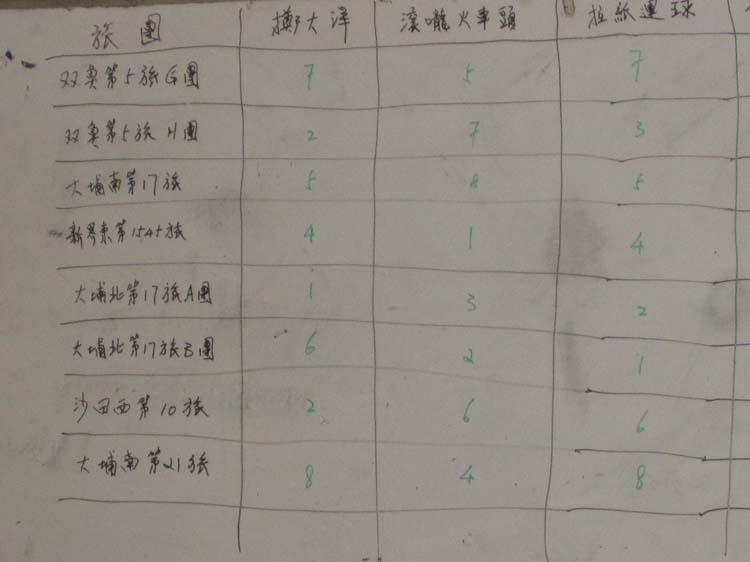 旅團 擲大洋 滾嚨火車頭 拉紙運球
双魚第5旅G團 7 5 7
双魚第5旅H團 2 7 3
大埔南第17旅 5 8 5
新界東第1545旅 4 1 4
大埔北第17旅A團 1 3 2
大埔北第17旅B團 6 2 1
沙田西第10旅 2 6 6
大埔南第21旅 8 4 8